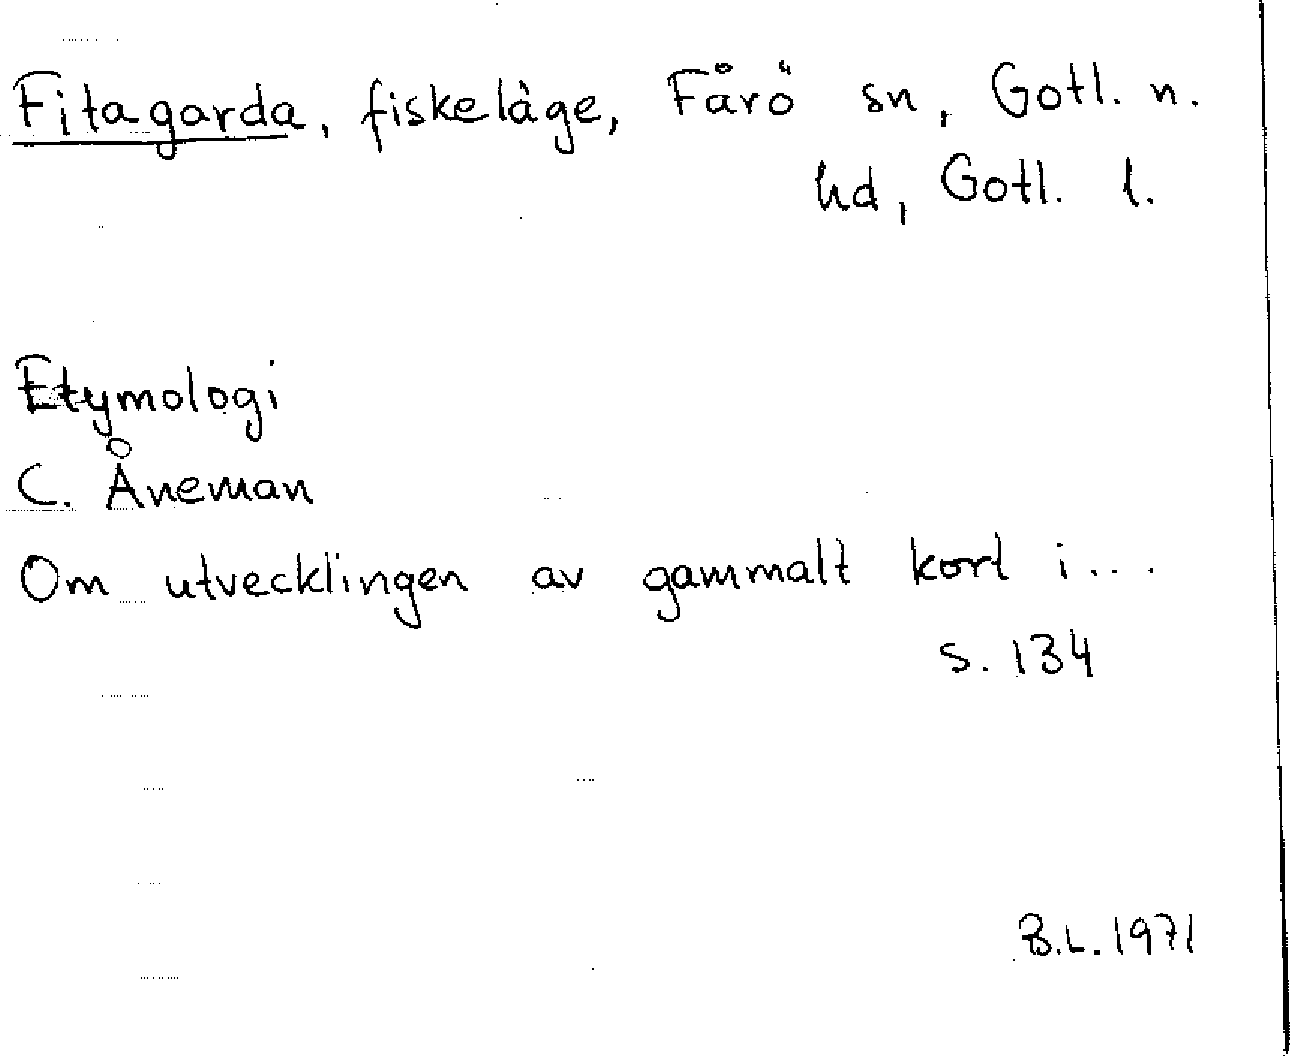 Fitagarda, fiskeläge, Fårö sn, Gotl. n.
hd, Gotl. l.
Etymologi
C. Åneman
Om utvecklingen av gammalt kort i...
s. 134
B.L. 1971